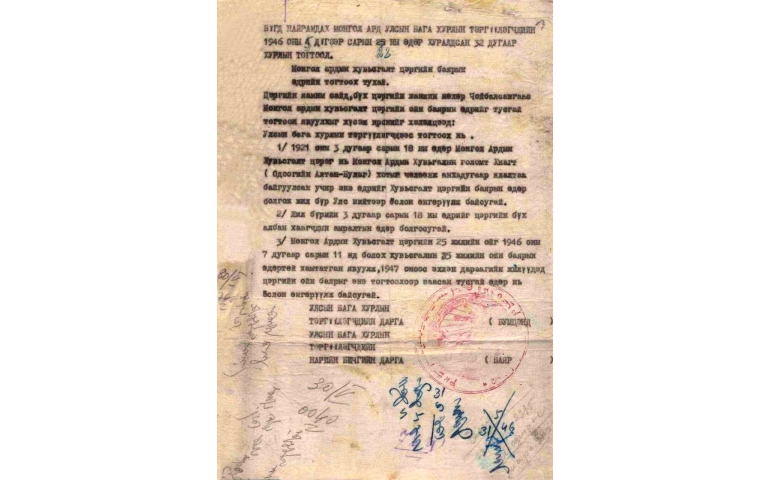 БҮГД НАЙРАМДАХ МОНГОЛ АРД УЛСЫН БАГА ХУРЛЫН ТЭРГҮҮЛЭГЧДИЙН
1946 ОНЫ 5 ДУГААР САРЫН 29 НЫ ӨДӨР ХУРАЛДСАН 32 ДУГААР
ХУРЛЫН ТОГТООЛ.
Монгол ардын хувьсгалт цэргийн баярын
өдрийг тогтоох тухай.
Цэргийн яамны сайд, бүх цэргийн жанжин нөхөр Чойбалсангаас
Монгол ардын хувьсгалт цэргийн ойн баярын өдрийг тусгай
тогтоон явуулахыг хүсэж ирснийг хэлэлцээд:
Улсын бага хурлын тэргүүлэгчдээс тогтоох нь .
1/ 1921 оны 3 дугаар сарын 18 ны өдөр Монгол Ардын
Хувьсгалт цэрэг нь Монгол Ардын Хувьгалын голомт Хиагт
( Одоогийн Алтан-Булаг) хотыг чөлөөлж анхадугаар ялалтаа
байгуулсан учир энэ өдрийг Хувьсгалт цэргийн баярын өдөр
болгож жил бүр Улс нийтээр ёслон өнгөрүүлж байсугай.
2/ Жил бүрийн 3 дугаар сарын 18 ны өдрийг цэргийн бүх
албан хаагчдын амралтын өдөр болгосугай.
3/ Монгол Ардын Хувьсгалт цэргийн 25 жилийн ойг 1946 оны
7 дугаар сарын 11 нд болох хувьсгалын 25 жилийн ойн баярын
өдөртэй хамтатган явуулж, 1947 оноос эхлэн дараагийн жилүүдэд
цэргийн ойн баярыг энэ тогтоолоор заасан тусгай өдөр нь
ёслон өнгөрүүлж байсугай.
УЛСЫН БАГА ХУРЛЫН
ТЭРГҮҮЛЭГЧДИЙН ДАРГА ( БУМЦЭНД )
УЛСЫН БАГА ХУРЛЫН
ТЭРГҮҮЛЭГЧДИЙН
НАРИЙН БИЧГИЙН ДАРГА ( БАЯР )